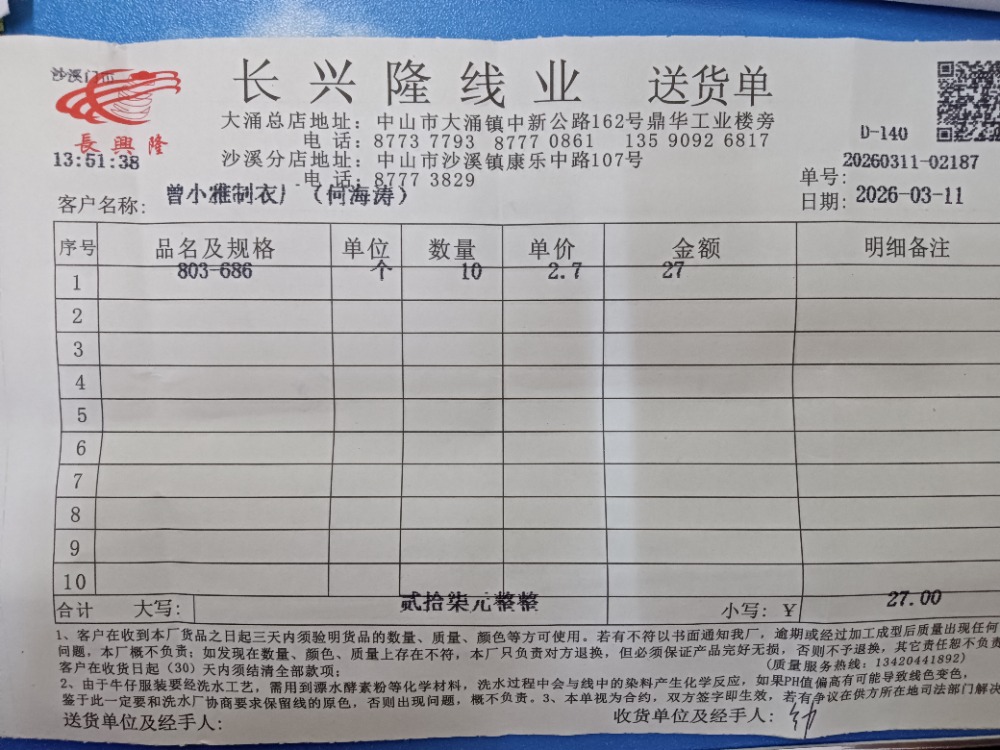 沙溪门市
長興隆
长兴隆线业 送货单
大涌总店地址: 中山市大涌镇中新公路162号鼎华工业楼旁
电 话: 8773 7793 8777 0861 135 9092 6817
D-140
13:51:38
沙溪分店地址: 中山市沙溪镇康乐中路107号
电 话: 8777 3829
单号: 20260311-02187
客户名称: 曾小雅制衣厂 (何海涛)
日期: 2026-03-11
序号 品名及规格 单位 数量 单价 金额 明细备注
1 803-686 个 10 2.7 27
2
3
4
5
6
7
8
9
10
合计 大写: 贰拾柒元整整 小写: ¥ 27.00
1、客户在收到本厂货品之日起三天内须验明货品的数量、质量、颜色等方可使用。若有不符以书面通知我厂, 逾期或经过加工成型后质量出现任何
问题, 本厂概不负责; 如发现在数量、颜色、质量上存在不符, 本厂只负责对方退换, 但必须保证产品完好无损, 否则不予退换, 其它责任恕不负责
客户在收货日起 (30) 天内须结清全部款项; (质量服务热线: 13420441892)
2、由于牛仔服装要经洗水工艺, 需用到漂水酵素粉等化学材料, 洗水过程中会与线中的染料产生化学反应, 如果PH值偏高有可能导致线色变色,
鉴于此一定要和洗水厂协商要求保留线的原色, 否则出现问题, 概不负责。3、本单视为合约, 双方签字即生效, 若有争议在供方所在地司法部门解决
送货单位及经手人: 收货单位及经手人: